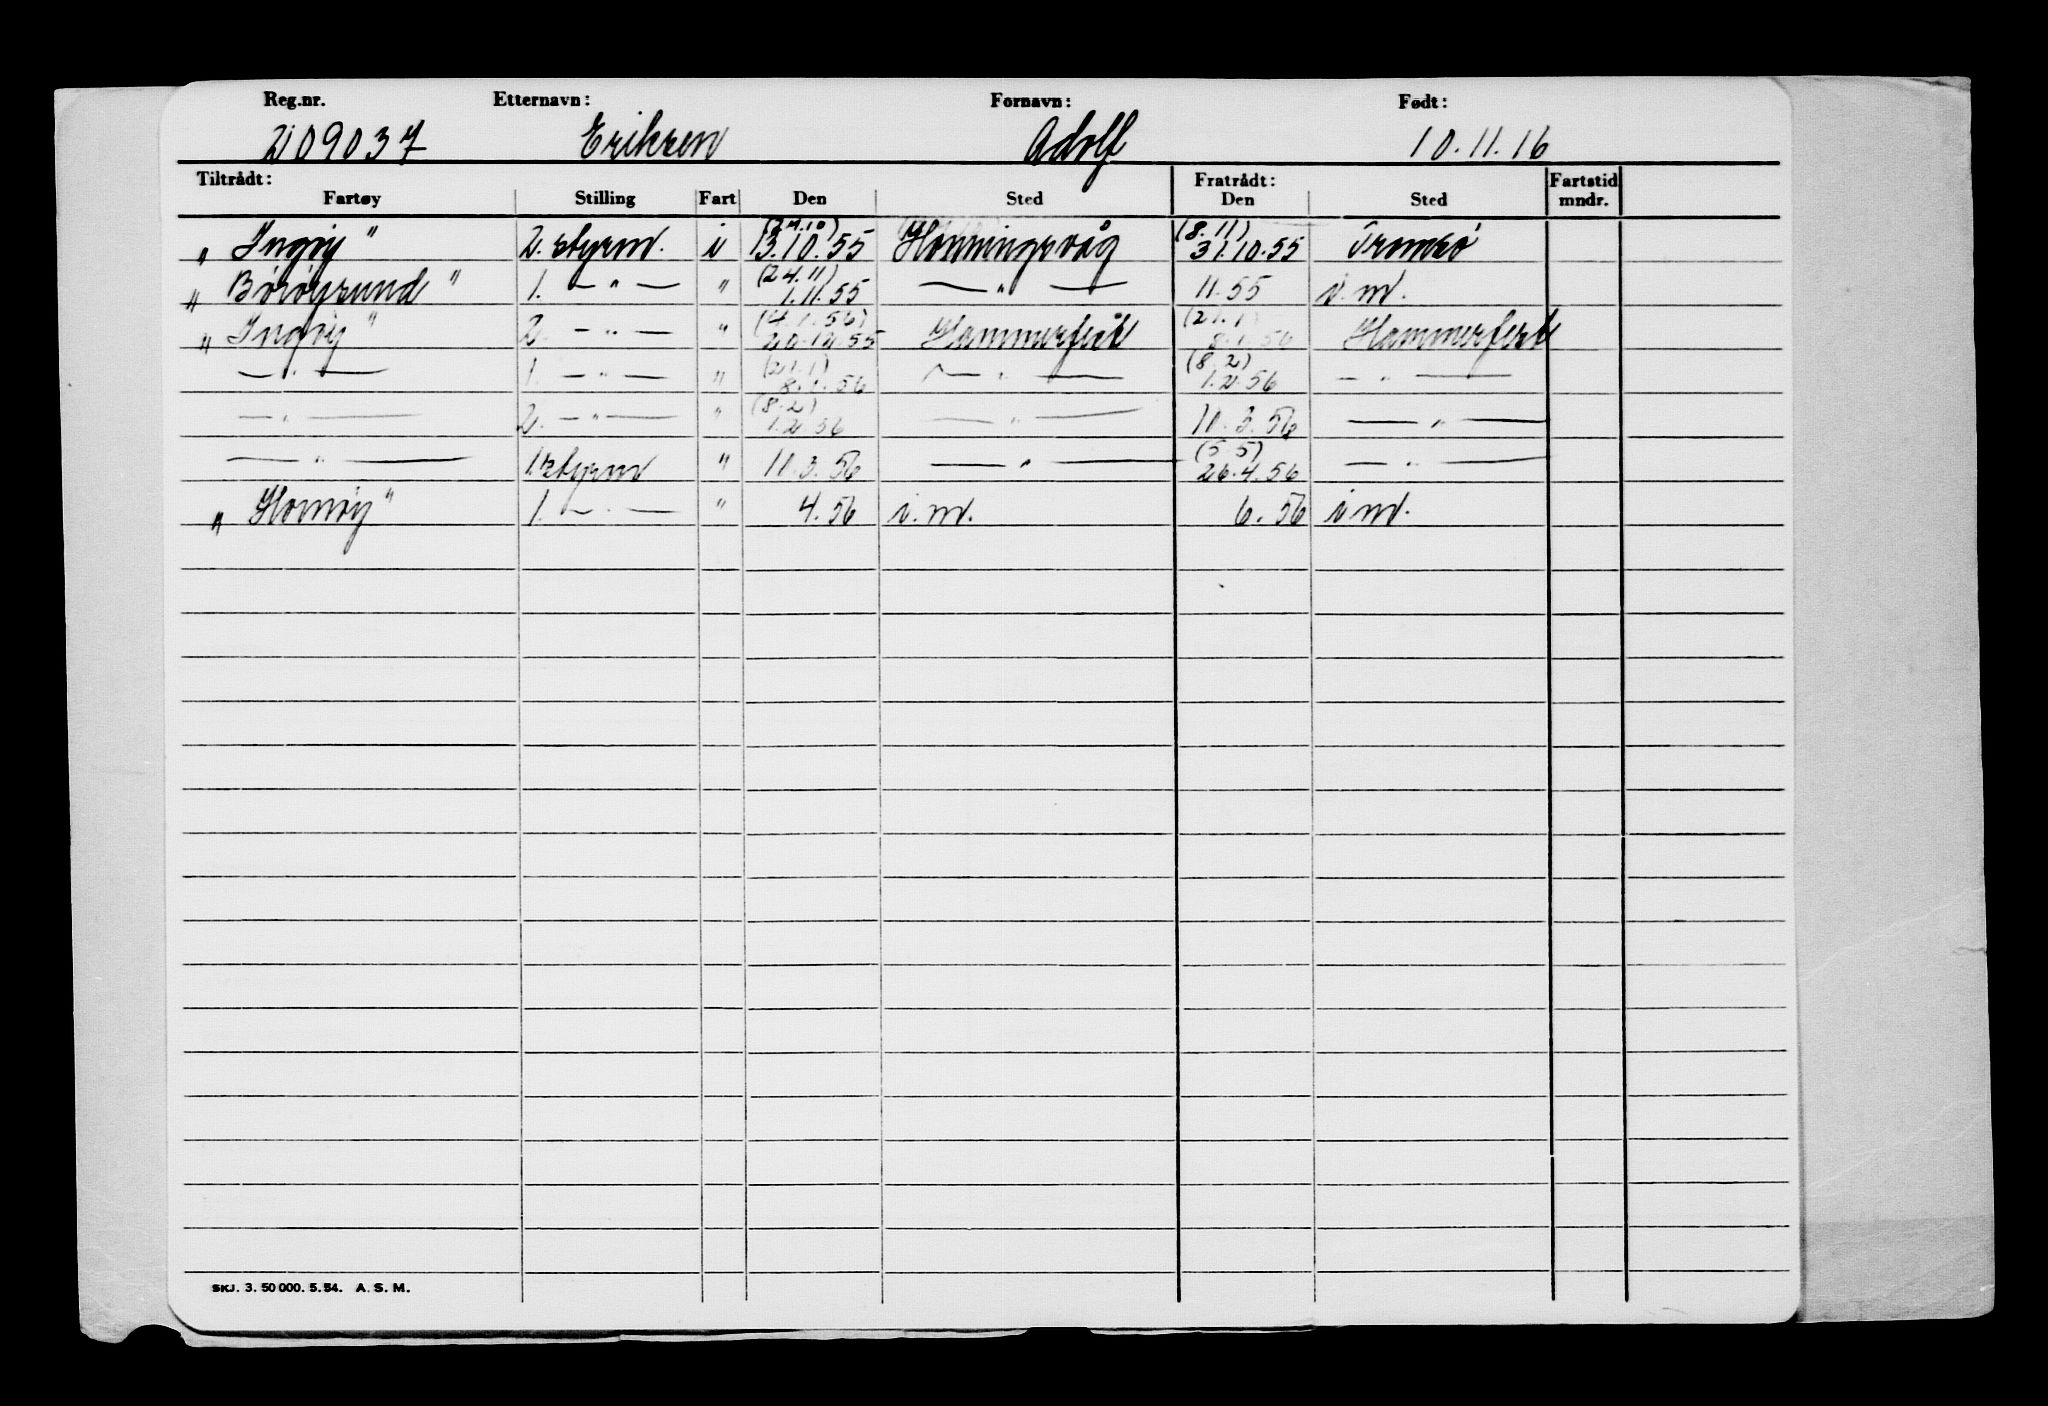 Reg.nr. Etternavn: Fornavn: Født:
209037 Eriksen Adolf 10.11.16
Tiltrådt: Fratrådt: Fartstid
Fartøy Stilling Fart Den Sted Den Sted mndr.
(24.10) (8.11)
„Ingøy" 2. styrm. i 13.10.55 Honningsvåg 31.10.55 Tromsø
(24.11)
„Börøysund" 1. — " — " 1.11.55 — " — 11.55 i.m.
(4.1.56) (21.1)
„Ingøy" 2. — " — " 20.12.55 Hammerfest 8.1.56 Hammerfest
(21.1) (8.2)
— " — 1. — " — " 8.1.56 — " — 1.2.56 — " —
(8.2)
— " — 2. — " — " 1.2.56 — " — 10.3.56 — " —
(5.5)
— " — 1. styrm " 10.3.56 — " — 26.4.56 — " —
„Hornøy" 1. — " — " 4.56 i.m. 6.56 i m.
SKJ. 3. 50 000. 5. 54. A. S. M.